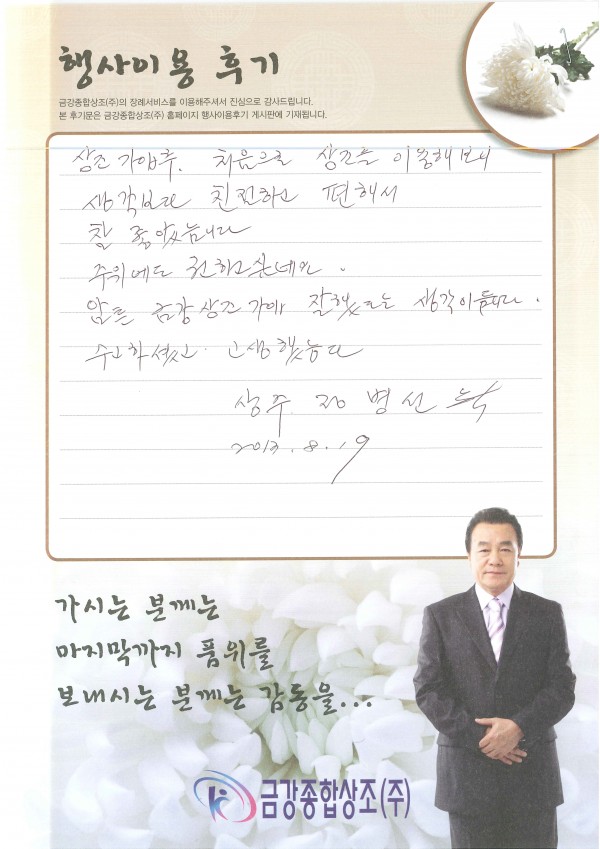 행사이용 후기
금강종합상조(주)의 장례서비스를 이용해주셔서 진심으로 감사드립니다.
본 후기문은 금강종합상조(주) 홈페이지 행사이용후기 게시판에 기재됩니다.
상조 가입후. 처음으로 상조를 이용해보니
생각보다 친절하고 편해서
참 좋았습니다
주위에도 권하고 싶네요.
암튼 금강상조 가입 잘했다는 생각이 듭니다.
수고하셨고 고생했습니다
상주 정병선
2013.8.19
가시는 분께는
마지막까지 품위를
보내시는 분께는 감동을...
금강종합상조(주)